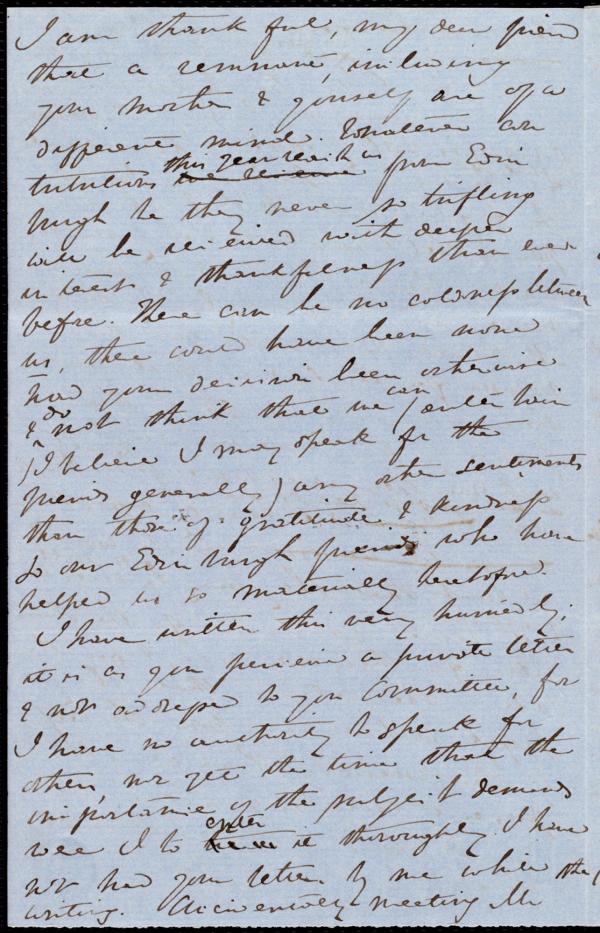 I am thankful, my dear friend
that a remnant, including
your mother & yourself are of a
different mind. Whatever con
tributions this year reach us from Edin
burgh be they never so trifling
will be received with deeper
interest & thankfulness than ever
before. There can be no coldness between
us, there could have been none
had your decision been otherwise
& do not think that we can entertain
(I believe I may speak for the
friends generally) any other sentiments
than those of gratitude & kindness
to our Edinburgh friends who have
helped us so materially heretofore.
I have written this very hurriedly,
it is as you perceive a private letter
& not addressed to your Committee, for
I have no authority to speak for
others, nor yet the time that the
importance of the subject demands
were I to enter it thoroughly. I have
not had your letter by me while
writing. Accidentally meeting Mr